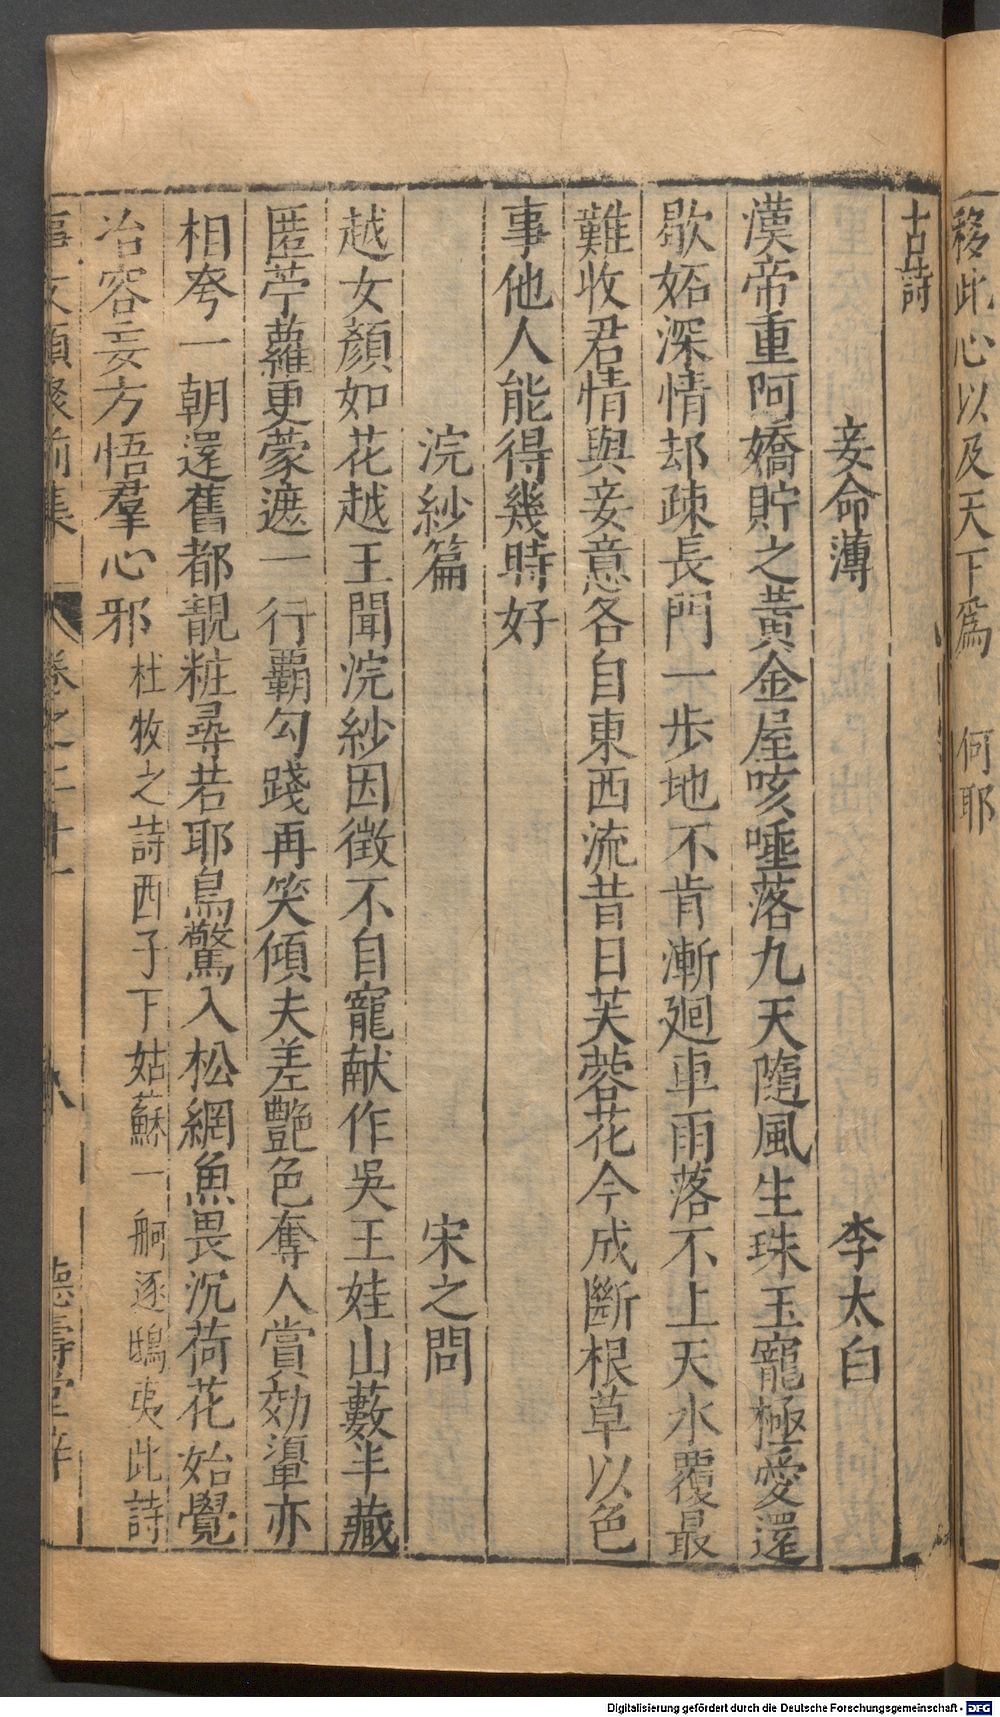 移此心以及天下爲　何耶
古詩
妾命薄　李太白
漢帝重阿嬌貯之黃金屋咳唾落九天隨風生珠玉寵極愛還
歇妬深情却疎長門一步地不肯漸廻車雨落不上天水覆最
難收君情與妾意各自東西流昔日芙蓉花今成斷根草以色
事他人能得幾時好
浣紗篇　宋之問
越女顏如花越王聞浣紗因徵不自寵献作吳王娃山藪半藏
匿苧蘿更蒙遮一行覇勾踐再笑傾夫差艷色奪人賞効顰亦
相夸一朝還舊都靚粧尋若耶鳥驚入松網魚畏沉荷花始覺
冶容妄方悟羣心邪 杜牧之詩西子下姑蘇一舸逐鴟夷此詩
事文類聚前集 卷之二十一 德壽堂梓
Digitalisierung gefördert durch die Deutsche Forschungsgemeinschaft - DFG